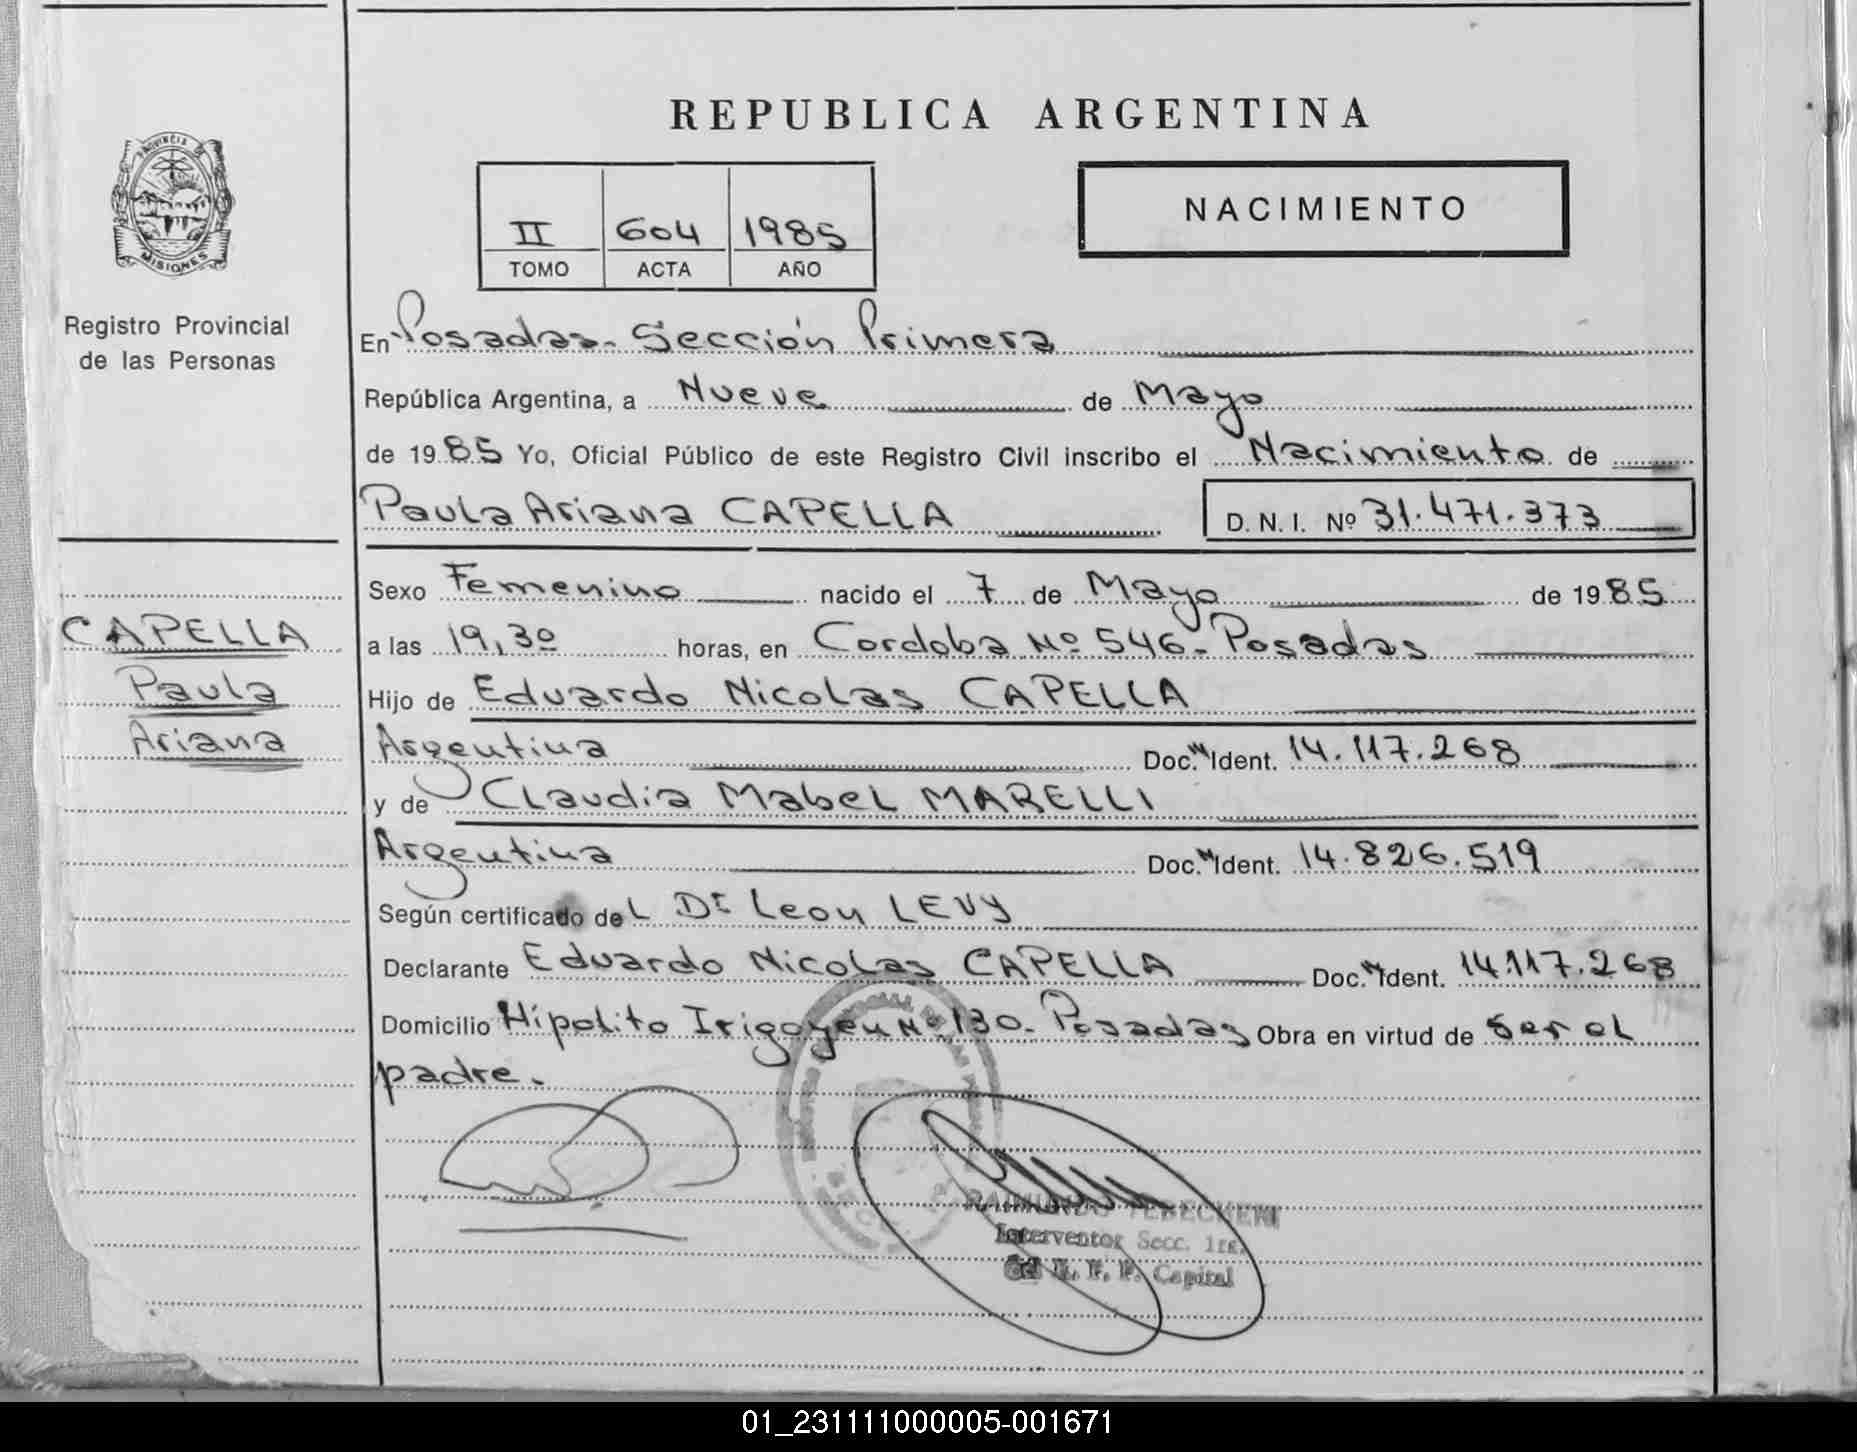 REPUBLICA ARGENTINA
PROVINCIA DE
MISIONES
Registro Provincial
de las Personas
II 604 1985
TOMO ACTA AÑO
NACIMIENTO
En Posadas - Sección Primera
República Argentina, a Nueve de Mayo
de 1985 Yo, Oficial Público de este Registro Civil inscribo el Nacimiento de
Paula Ariana CAPELLA D. N. I. Nº 31.471.373
CAPELLA
Paula
Ariana
Sexo Femenino nacido el 7 de Mayo de 1985
a las 19,30 horas, en Cordoba Nº 546 - Posadas
Hijo de Eduardo Nicolas CAPELLA
Argentina Doc. Ident. 14.117.268
y de Claudia Mabel MARELLI
Argentina Doc. Ident. 14.826.519
Según certificado del Dr Leon LEVY
Declarante Eduardo Nicolas CAPELLA Doc. Ident. 14.117.268
Domicilio Hipolito Irigoyen Nº 130 - Posadas Obra en virtud de ser el
padre.
Interventor Secc. 1ra.
Capital
01_231111000005-001671